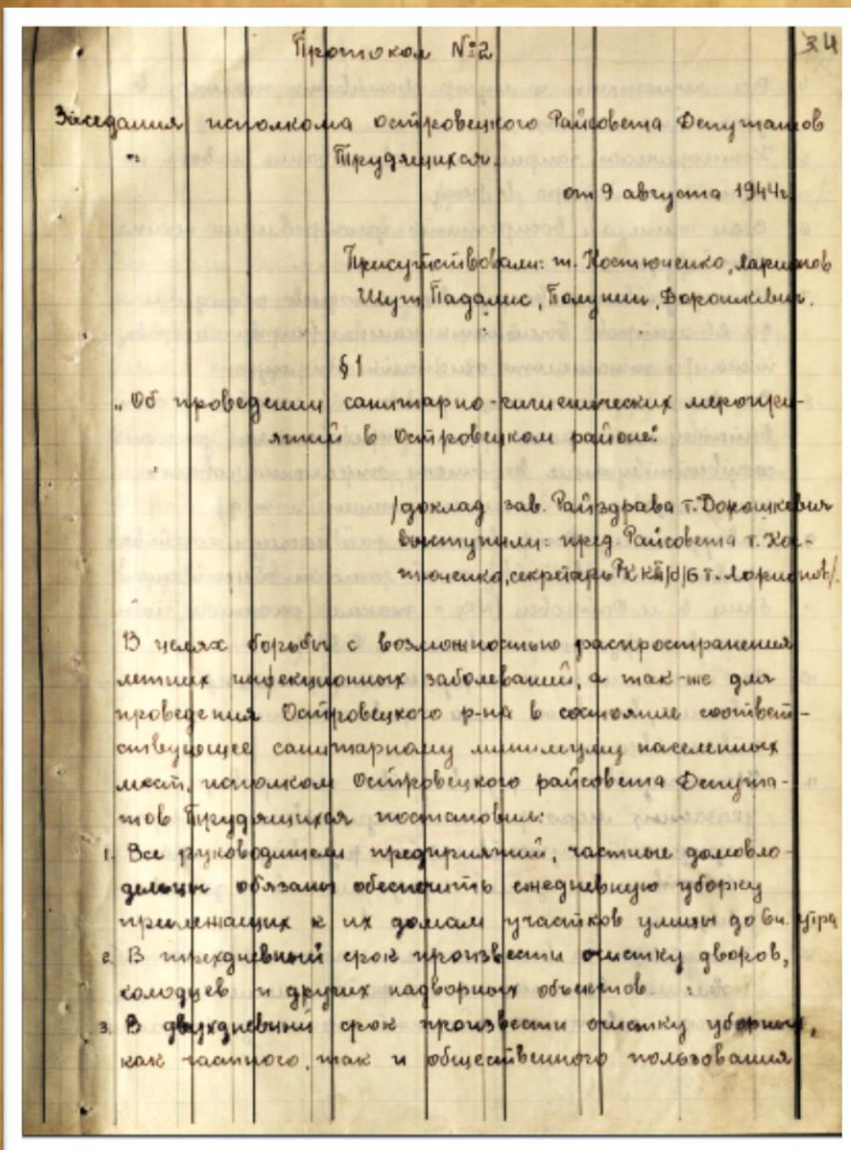 34
Протокол №2
Заседания исполкома Островецкого Райсовета Депутатов
Трудящихся.
от 9 августа 1944г.
Присутствовали: т. Костюченко, Ларионов
Шут, Падалис, Полунин, Дорошкевич.
§1
„Об проведении санитарно-гигиенических меропри-
ятий в Островецком районе."
/доклад зав. Райздрава т. Дорошкевич
выступили: пред. Райсовета т. Кос-
тюченко, секретарь РК КП/б/Б т. Ларионов/.
В целях борьбы с возможностью распространения
летних инфекционных заболеваний, а так-же для
проведения Островецкого р-на в состояние соответ-
ствующее санитарному минимуму населенных
мест, исполком Островецкого райсовета Депута-
тов Трудящихся постановил:
1. Все руководители предприятий, частные домовла-
дельцы обязаны обеспечить ежедневную уборку
прилежащих к их домам участков улицы до 6ч. утра
2. В трехдневный срок произвести очистку дворов,
колодцев и других надворных объектов.
3. В двухдневный срок произвести очистку уборных,
как частного, так и общественного пользования